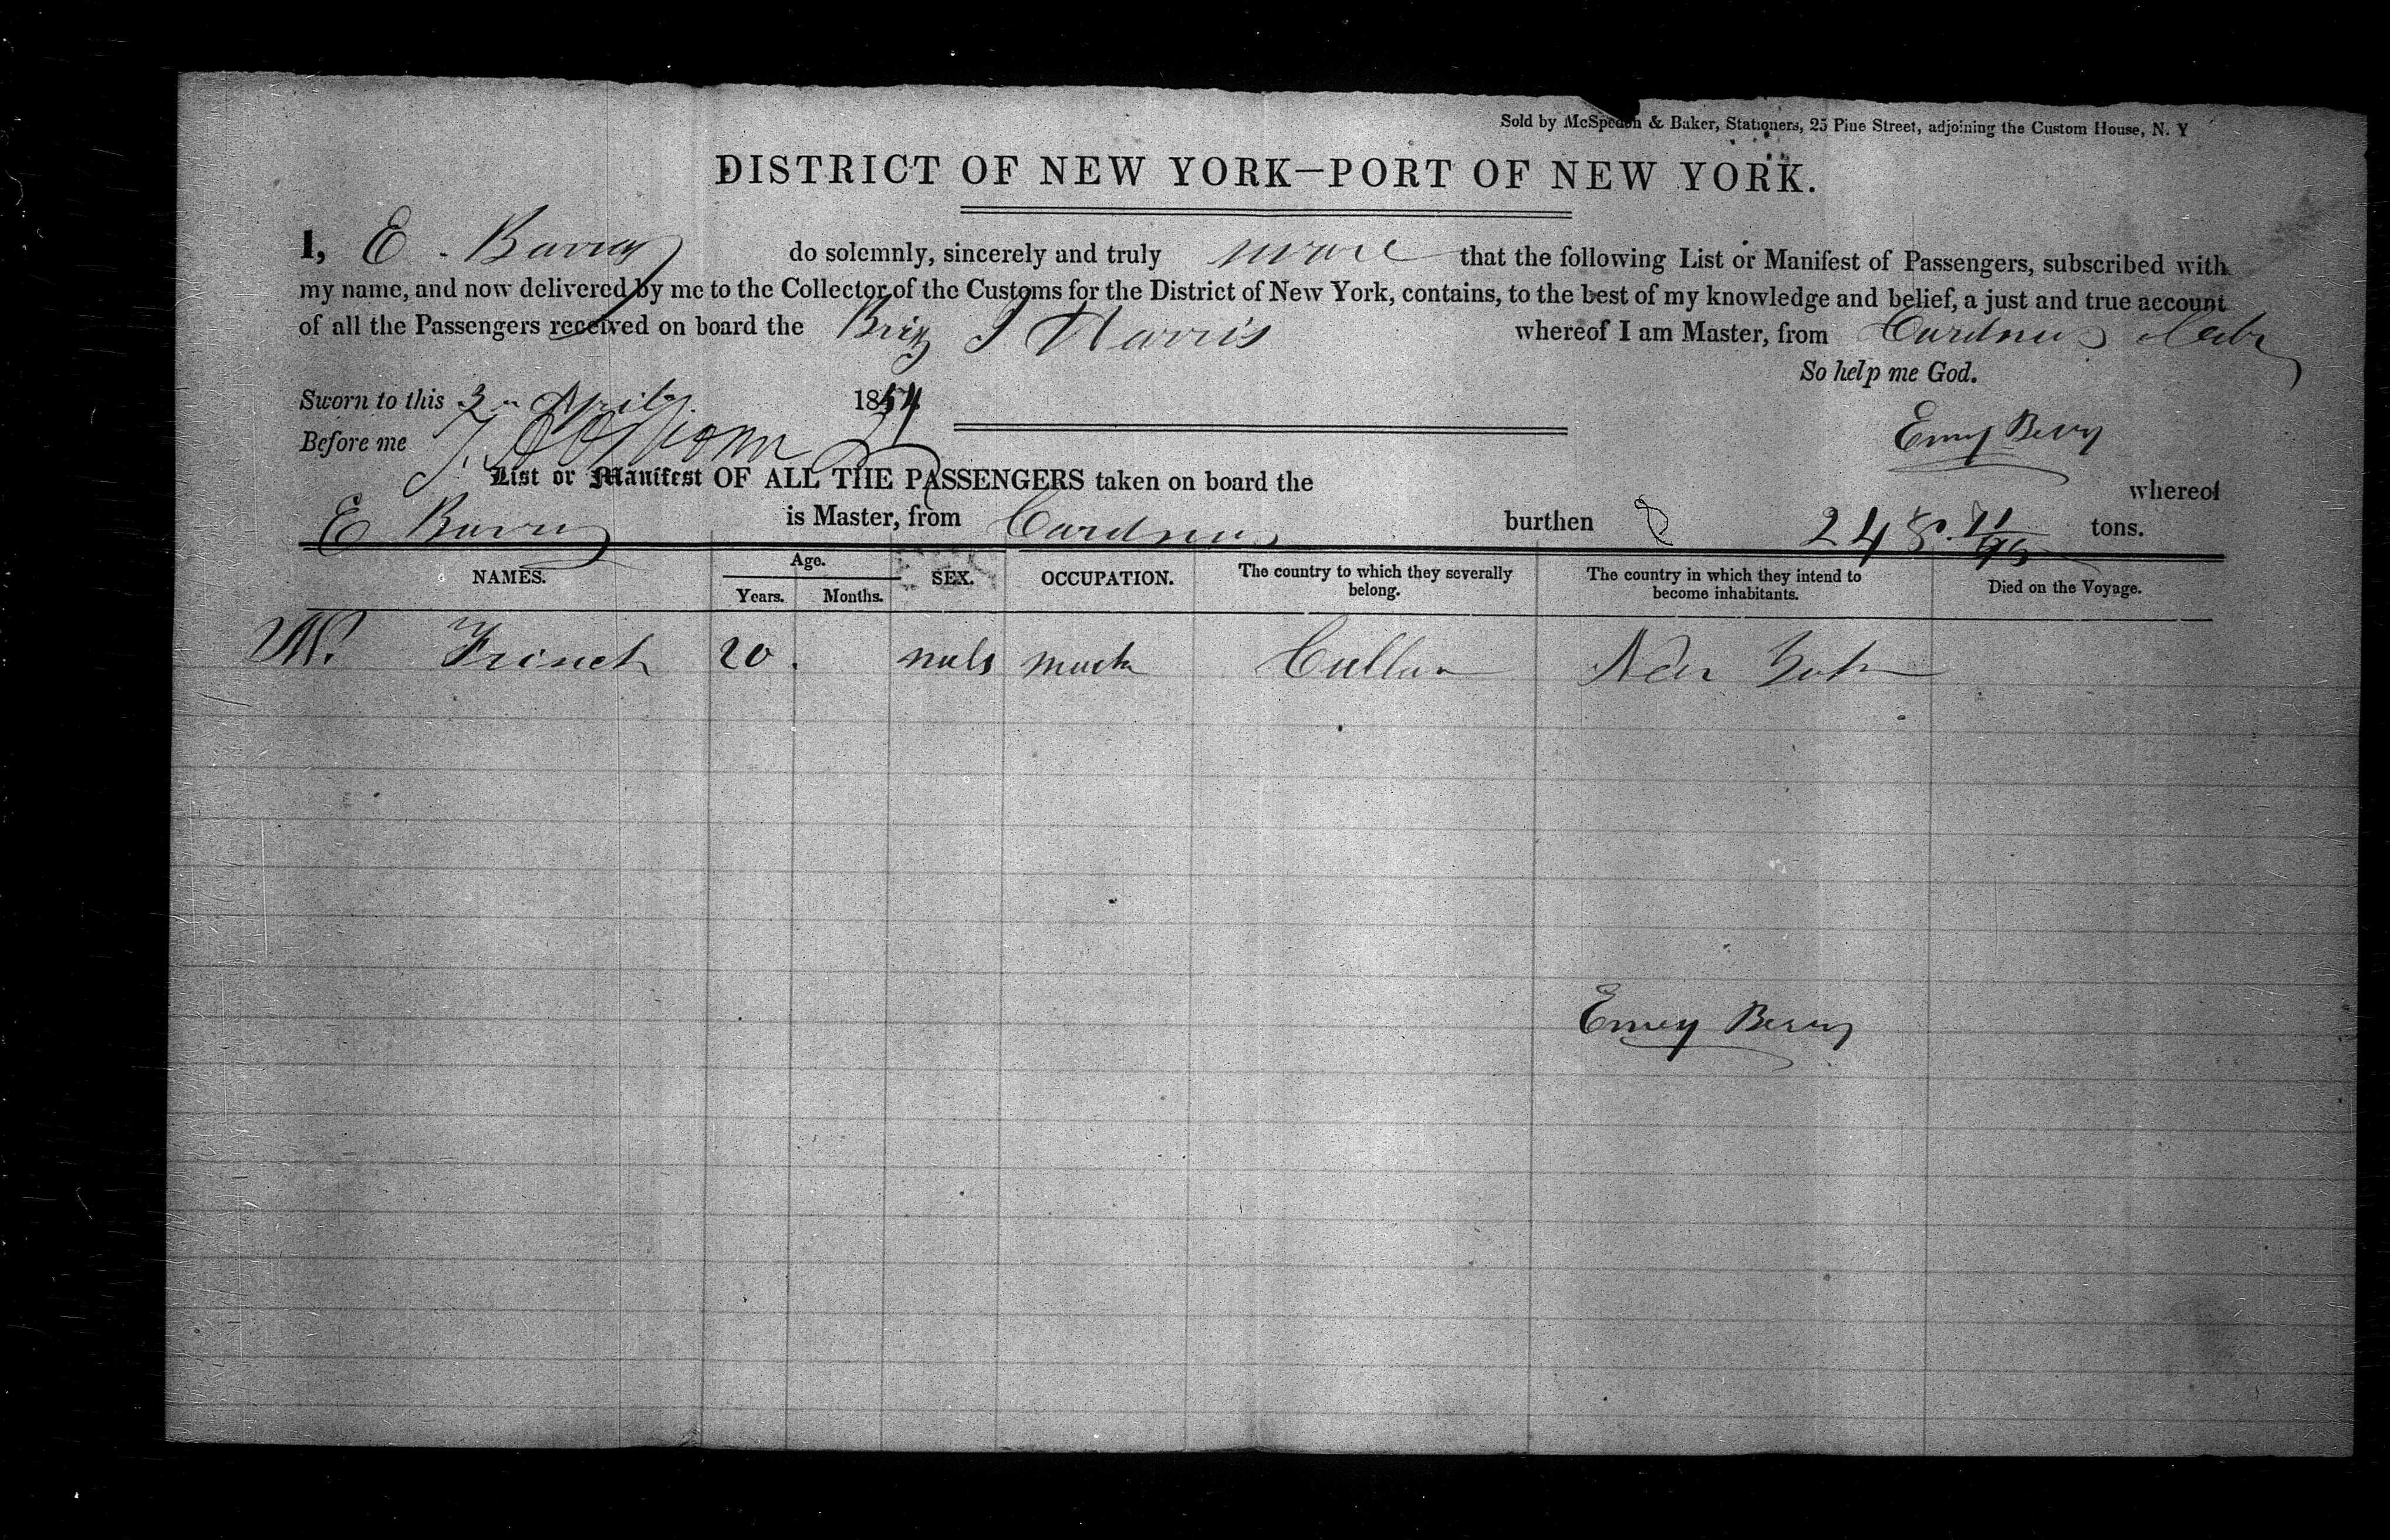 Sold by McSpedon & Baker, Stationers, 25 Pine Street, adjoining the Custom House, N. Y
DISTRICT OF NEW YORK—PORT OF NEW YORK.
I, E. Barry do solemnly, sincerely and truly swore that the following List or Manifest of Passengers, subscribed with
my name, and now delivered by me to the Collector of the Customs for the District of New York, contains, to the best of my knowledge and belief, a just and true account
of all the Passengers received on board the Brig J Harris whereof I am Master, from Cardnus
So help me God.
Sworn to this 3 April 1854
Before me
Emry Berry
List or Manifest OF ALL THE PASSENGERS taken on board the whereof
E Barry is Master, from Cardnus burthen 248. 71/95 tons.
NAMES. Age. Years. Months. SEX. OCCUPATION. The country to which they severally belong. The country in which they intend to become inhabitants. Died on the Voyage.
W. French 20. male New York
Emry Berry